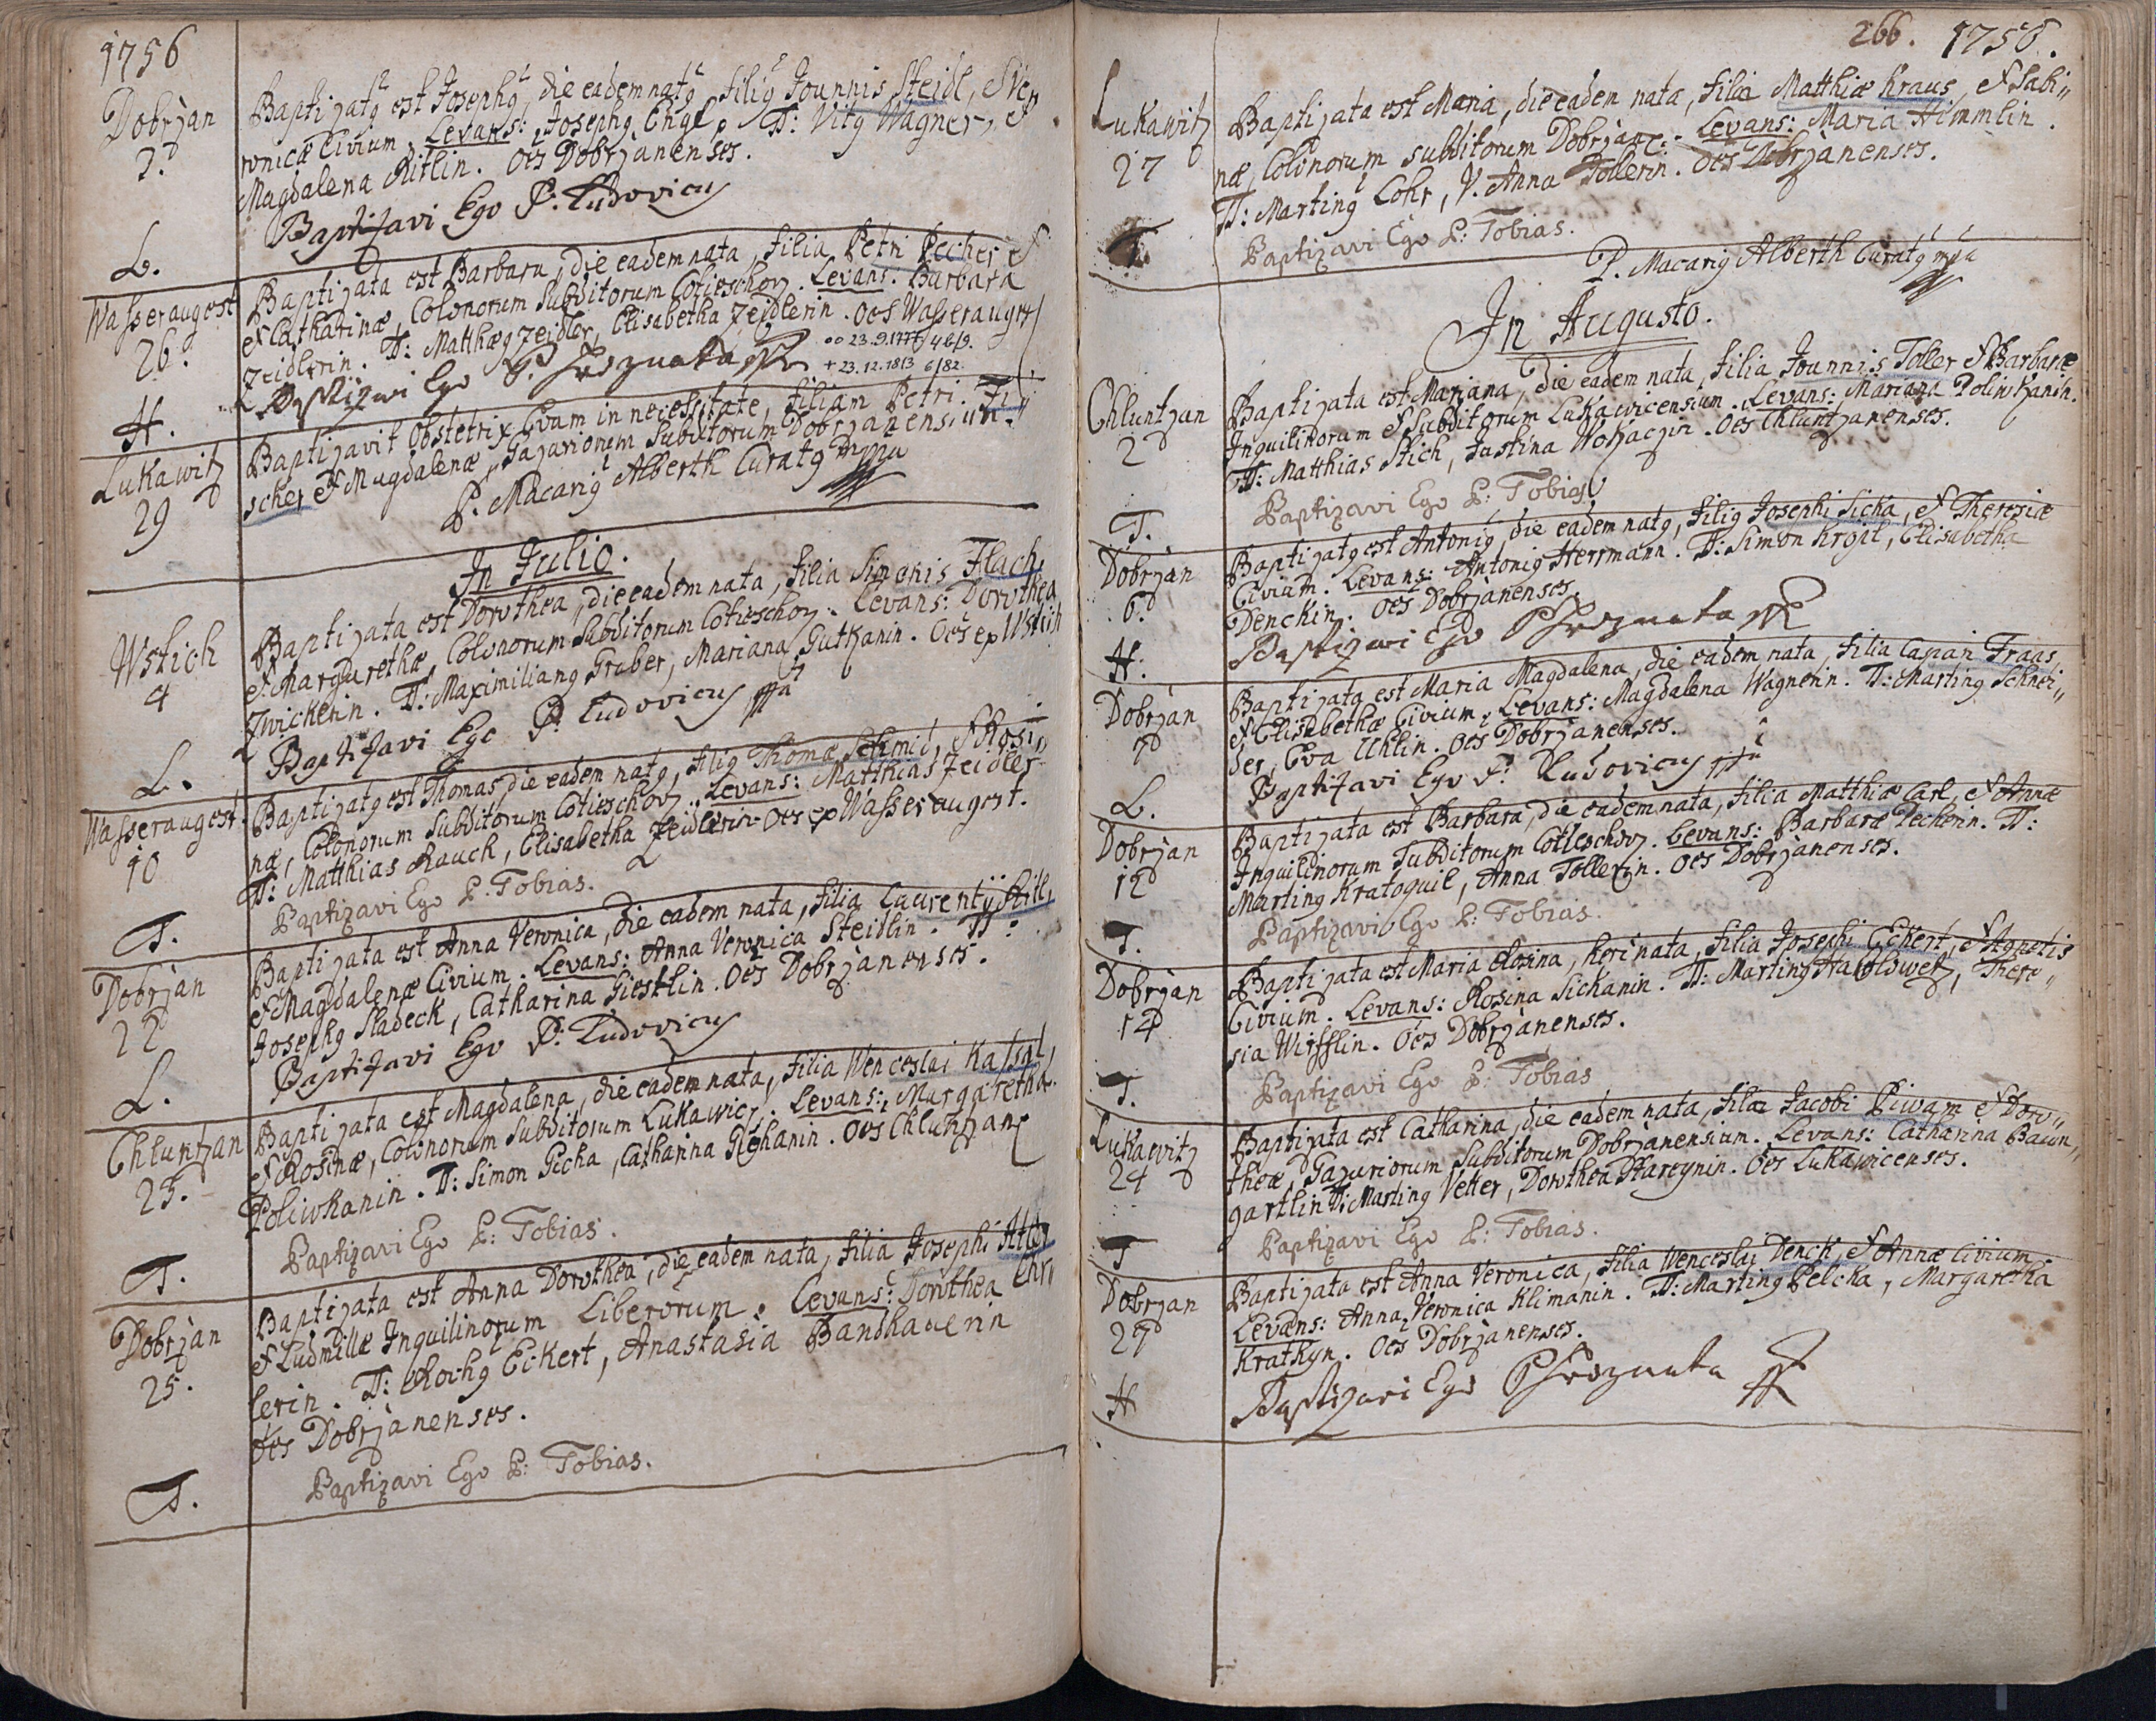 1756
Dobrzan
L.
Baptizatq est Josephq, die eadem natq, filiq Joannis Steidl, & Ve,,
ronicæ Civium. Levans: Josephq Engl. TT: Vitq Wagner, &
Magdalena Ritlin. Oes Dobrzanenses.
Baptizavi Ego P: Ludovicus
Wasseraugest
26.
H.
Baptizata est Barbara, die eadem nata, filia Petri Pecher &
& Catharinæ, Colonorum Subditorum Cotieschov. Levans: Barbara
Zeidlerin. TT: Matthæq Zeidler, Elisabetha Zeidlerin. Oes Wasseraugest
oo 23.9.1777 46/9.
+ 23.12.1813 6/82.
Baptizavi Ego P. Hroznata
Lukawitz
29
Baptizavit Obstetrix Evam in necessitate, filiam Petri Fi,,
scher & Magdalenæ, Gazarionem Subditorum Dobrzanensium.
P. Macariq Alberth Curatq mpa
In Julio.
Wstich
4
L.
Baptizata est Dorothea, die eadem nata, filia Simonis Flach,
& Margarethæ, Colonorum Subditorum Cotieschov. Levans: Dorothea
Zwickerin. TT: Maximilianq Gruber, Mariana Gutkanin. Oes ex Wstich
Baptizavi Ego P: Ludovicus
Wasseraugest.
10
T.
Baptizatq est Thomas, die eadem natq, filiq Thomæ Schmid, & Rosi,,
næ, Colonorum Subditorum Cotieschov. Levans: Matthias Zeidler
TT: Matthias Rauch, Elisabetha Zeidlerin. Oes ex Wasseraugest.
Baptizavi Ego P: Tobias.
Dobrzan
22
L.
Baptizata est Anna Veronica, die eadem nata, filia Laurentij
& Magdalenæ Civium. Levans: Anna Veronica Steidlin. TT:
Josephq Sladeck, Catharina Giestlin. Oes Dobrzanenses.
Baptizavi Ego P: Ludovicus
Chluntzan
23.
T.
Baptizata est Magdalena, die eadem nata, filia Wenceslai Kassal,
& Rosinæ, Colonorum Subditorum Lukawicz. Levans: Margaretha
Poliwkanin. TT: Simon Gicha, Catharina Gichanin. Oes Chluntzan
Baptizavi Ego P: Tobias.
Dobrzan
25.
T.
Baptizata est Anna Dorothea, die eadem nata, filia Josephi
& Ludmillæ Inquilinorum Liberorum. Levans: Dorothea
lerin. TT: Rochq Eckert, Anastasia Bandhauerin
Oes Dobrzanenses.
Baptizavi Ego P: Tobias.
266. 1756.
Lukawitz
27
T.
Baptizata est Maria, die eadem nata, filia Matthiæ Kraus, & Sabi,,
næ, Colonorum subditorum Dobrzan. Levans: Maria Himmlin.
TT: Martinq Lohr, V. Anna Tollerin. Oes Dobrzanenses.
Baptizavi Ego P: Tobias.
P. Macariq Alberth Curatq mpa
In Augusto.
Chluntzan
2
T.
Baptizata est Mariana, die eadem nata, filia Joannis Toller & Barbaræ
Inquilinorum & Subditorum Lukawicensium. Levans: Mariana Poliwkanin.
TT: Matthias Stich, Justina Wokaczin. Oes Chluntzanenses.
Baptizavi Ego P: Tobias
Dobrzan
6.
H.
Baptizatq est Antoniq, die eadem natq, filiq Josephi Sicka, & Theresiæ
Civium. Levans: Antoniq Herrmann. TT: Simon Kropil, Elisabetha
Denckin. Oes Dobrzanenses.
Baptizavi Ego P Hroznata
Dobrzan
7
L.
Baptizata est Maria Magdalena, die eadem nata, filia Caspari Fraas,
& Elisabethæ Civium. Levans: Magdalena Wagnerin. TT: Martinq Schnei,,
der, Eva Uhlin. Oes Dobrzanenses.
Baptizavi Ego P: Ludovicus
Dobrzan
12
T.
Baptizata est Barbara, die eadem nata, filia Matthiæ Carl & Annæ
Inquilinorum Subditorum Cotieschov. Levans: Barbara Pecherin. TT:
Martinq Kratoguil, Anna Tollerin. Oes Dobrzanenses.
Baptizavi Ego P: Tobias.
Dobrzan
14
T.
Baptizata est Maria Rosina, heri nata, filia Josephi Eckert, & Agnetis
Civium. Levans: Rosina Sickanin. TT: Martinq Haloswetz, There,,
sia Wirfflin. Oes Dobrzanenses.
Baptizavi Ego P: Tobias
Lukawitz
24
T
Baptizata est Catharina, die eadem nata, filia Jacobi Piwam & Doro,,
theæ, Gazariorum Subditorum Dobrzanensium. Levans: Catharina Baum,,
gartlin TT: Martinq Vetter, Dorothea Hareynin. Oes Lukawicenses.
Baptizavi Ego P: Tobias.
Dobrzan
27
H
Baptizata est Anna Veronica, filia Wenceslai Denck, & Annæ Civium.
Levans: Anna Veronica Klimanin. TT: Martinq Pelcka, Margaretha
Krathyn. Oes Dobrzanenses.
Baptizavi Ego P Hroznata